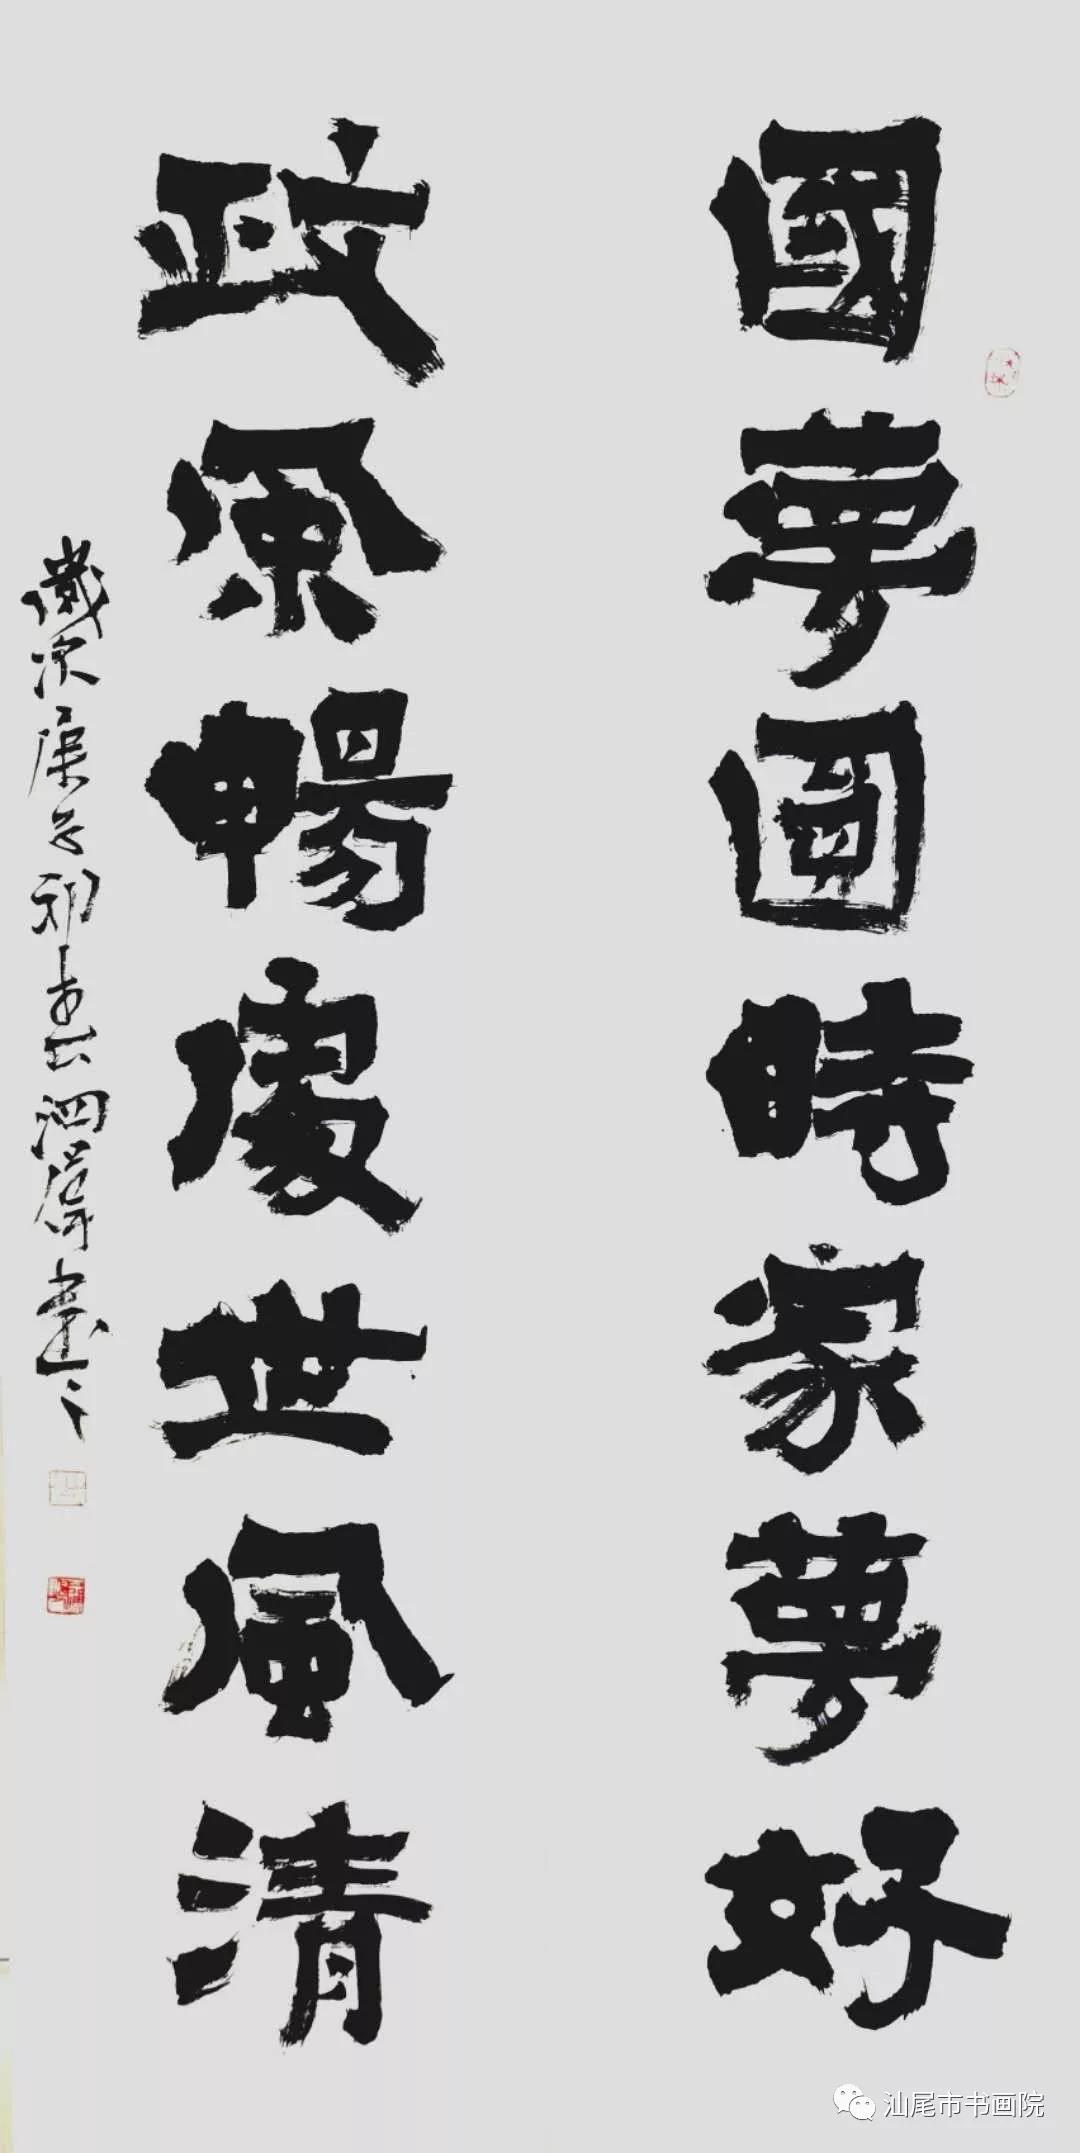 國夢圓時家夢好
政風暢處世風清
歲次庚子初春泗書
汕尾市书画院